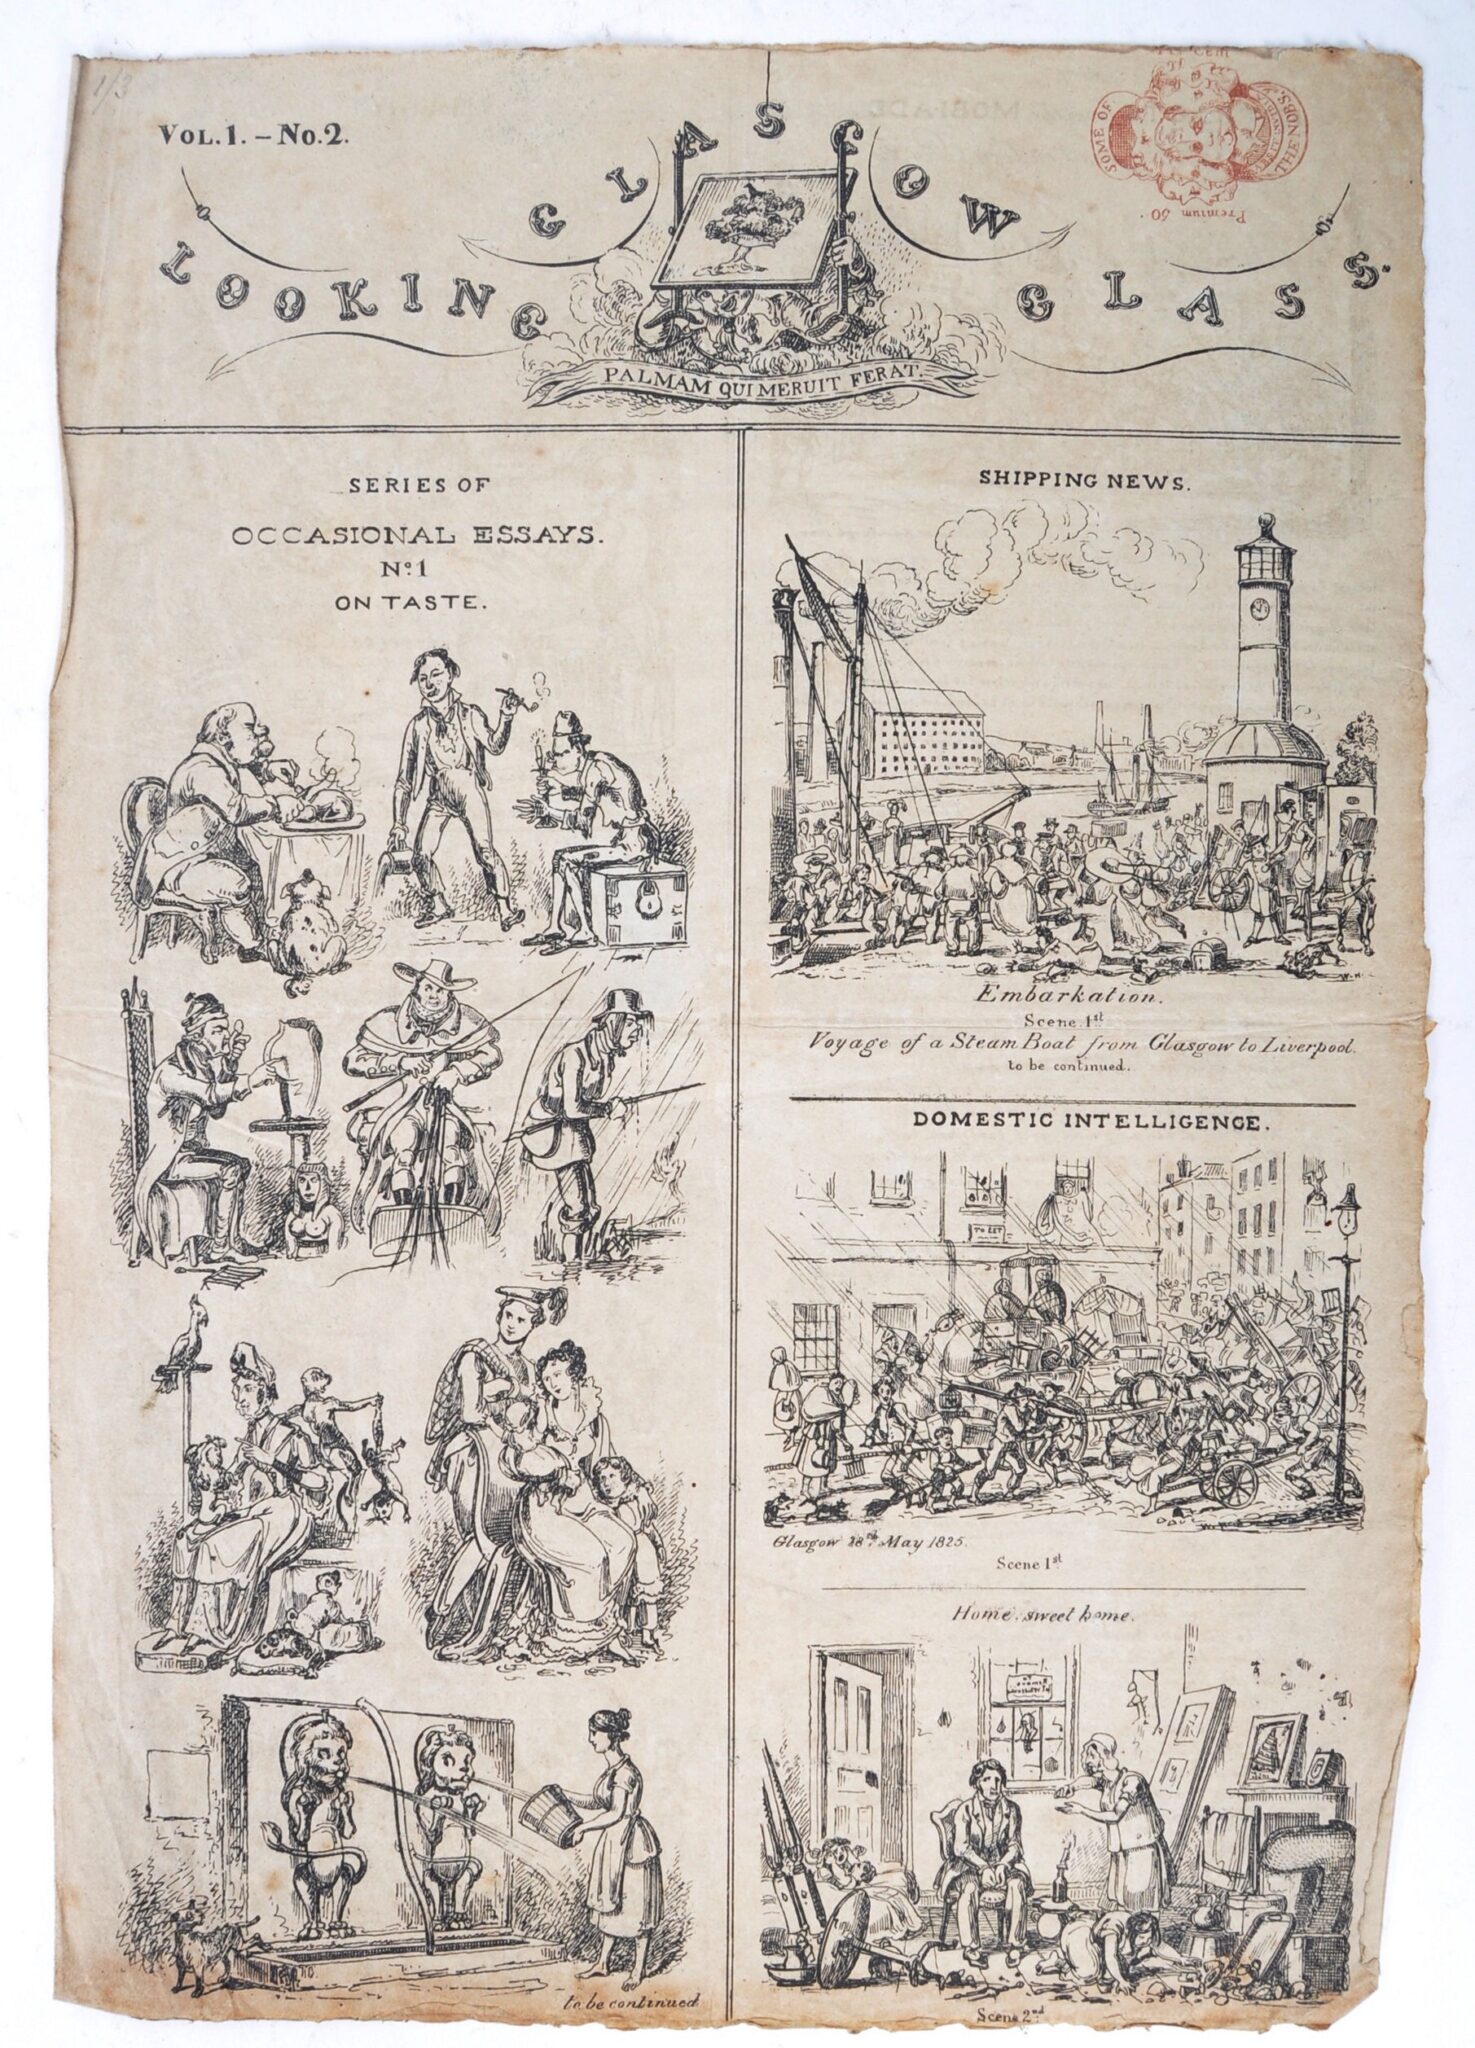 1/3
VOL.1.–No.2.
GLASGOW
LOOKING GLASS.
PALMAM QUI MERUIT FERAT.
SOME OF
THE NOBS.
Premium 50
SERIES OF
OCCASIONAL ESSAYS.
No. 1
ON TASTE.
to be continued
SHIPPING NEWS.
W.H.
Embarkation.
Scene 1st
Voyage of a Steam Boat from Glasgow to Liverpool.
to be continued.
DOMESTIC INTELLIGENCE.
TO LET
Glasgow 28th May 1825.
Scene 1st
Home, sweet home.
Scene 2nd